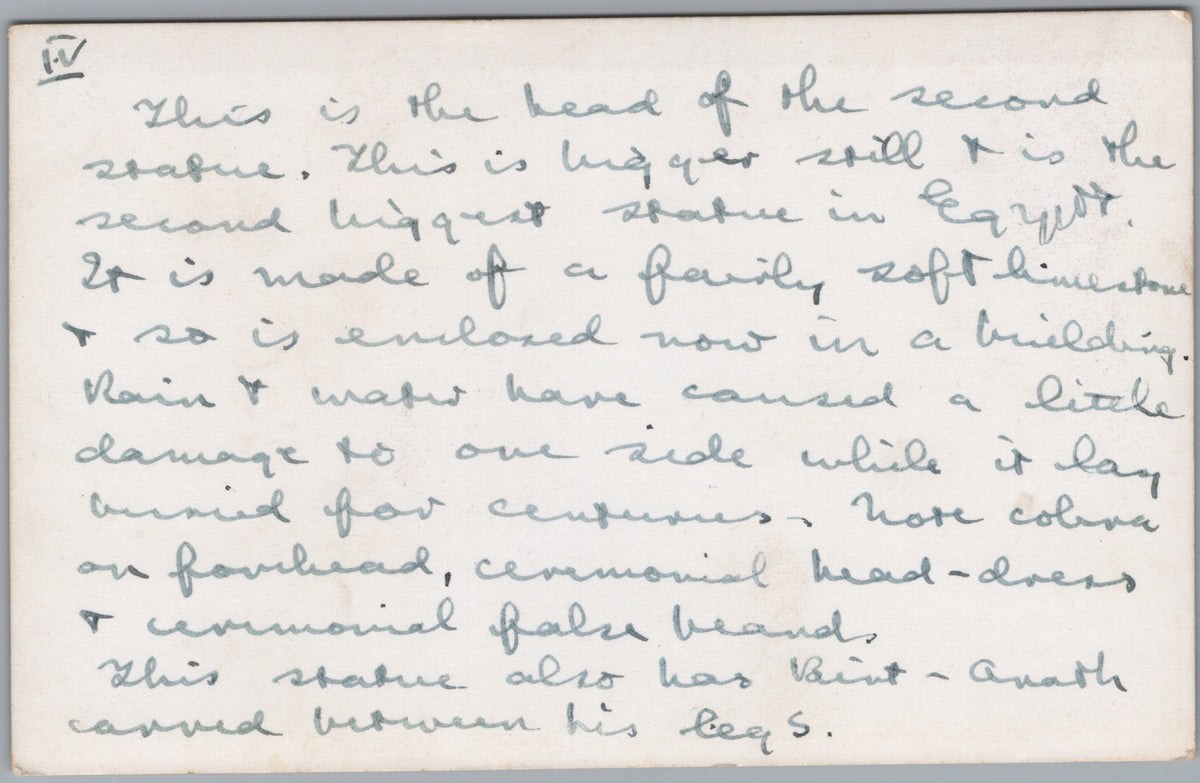 IV
This is the head of the second
statue. This is bigger still + is the
second biggest statue in Egypt.
It is made of a fairly soft limestone
+ so is enclosed now in a building.
Rain + water have caused a little
damage to one side while it lay
buried for centuries. Note cobra
on forehead, ceremonial head-dress
+ ceremonial false beard.
This statue also has Bint-Anath
carved between his legs.